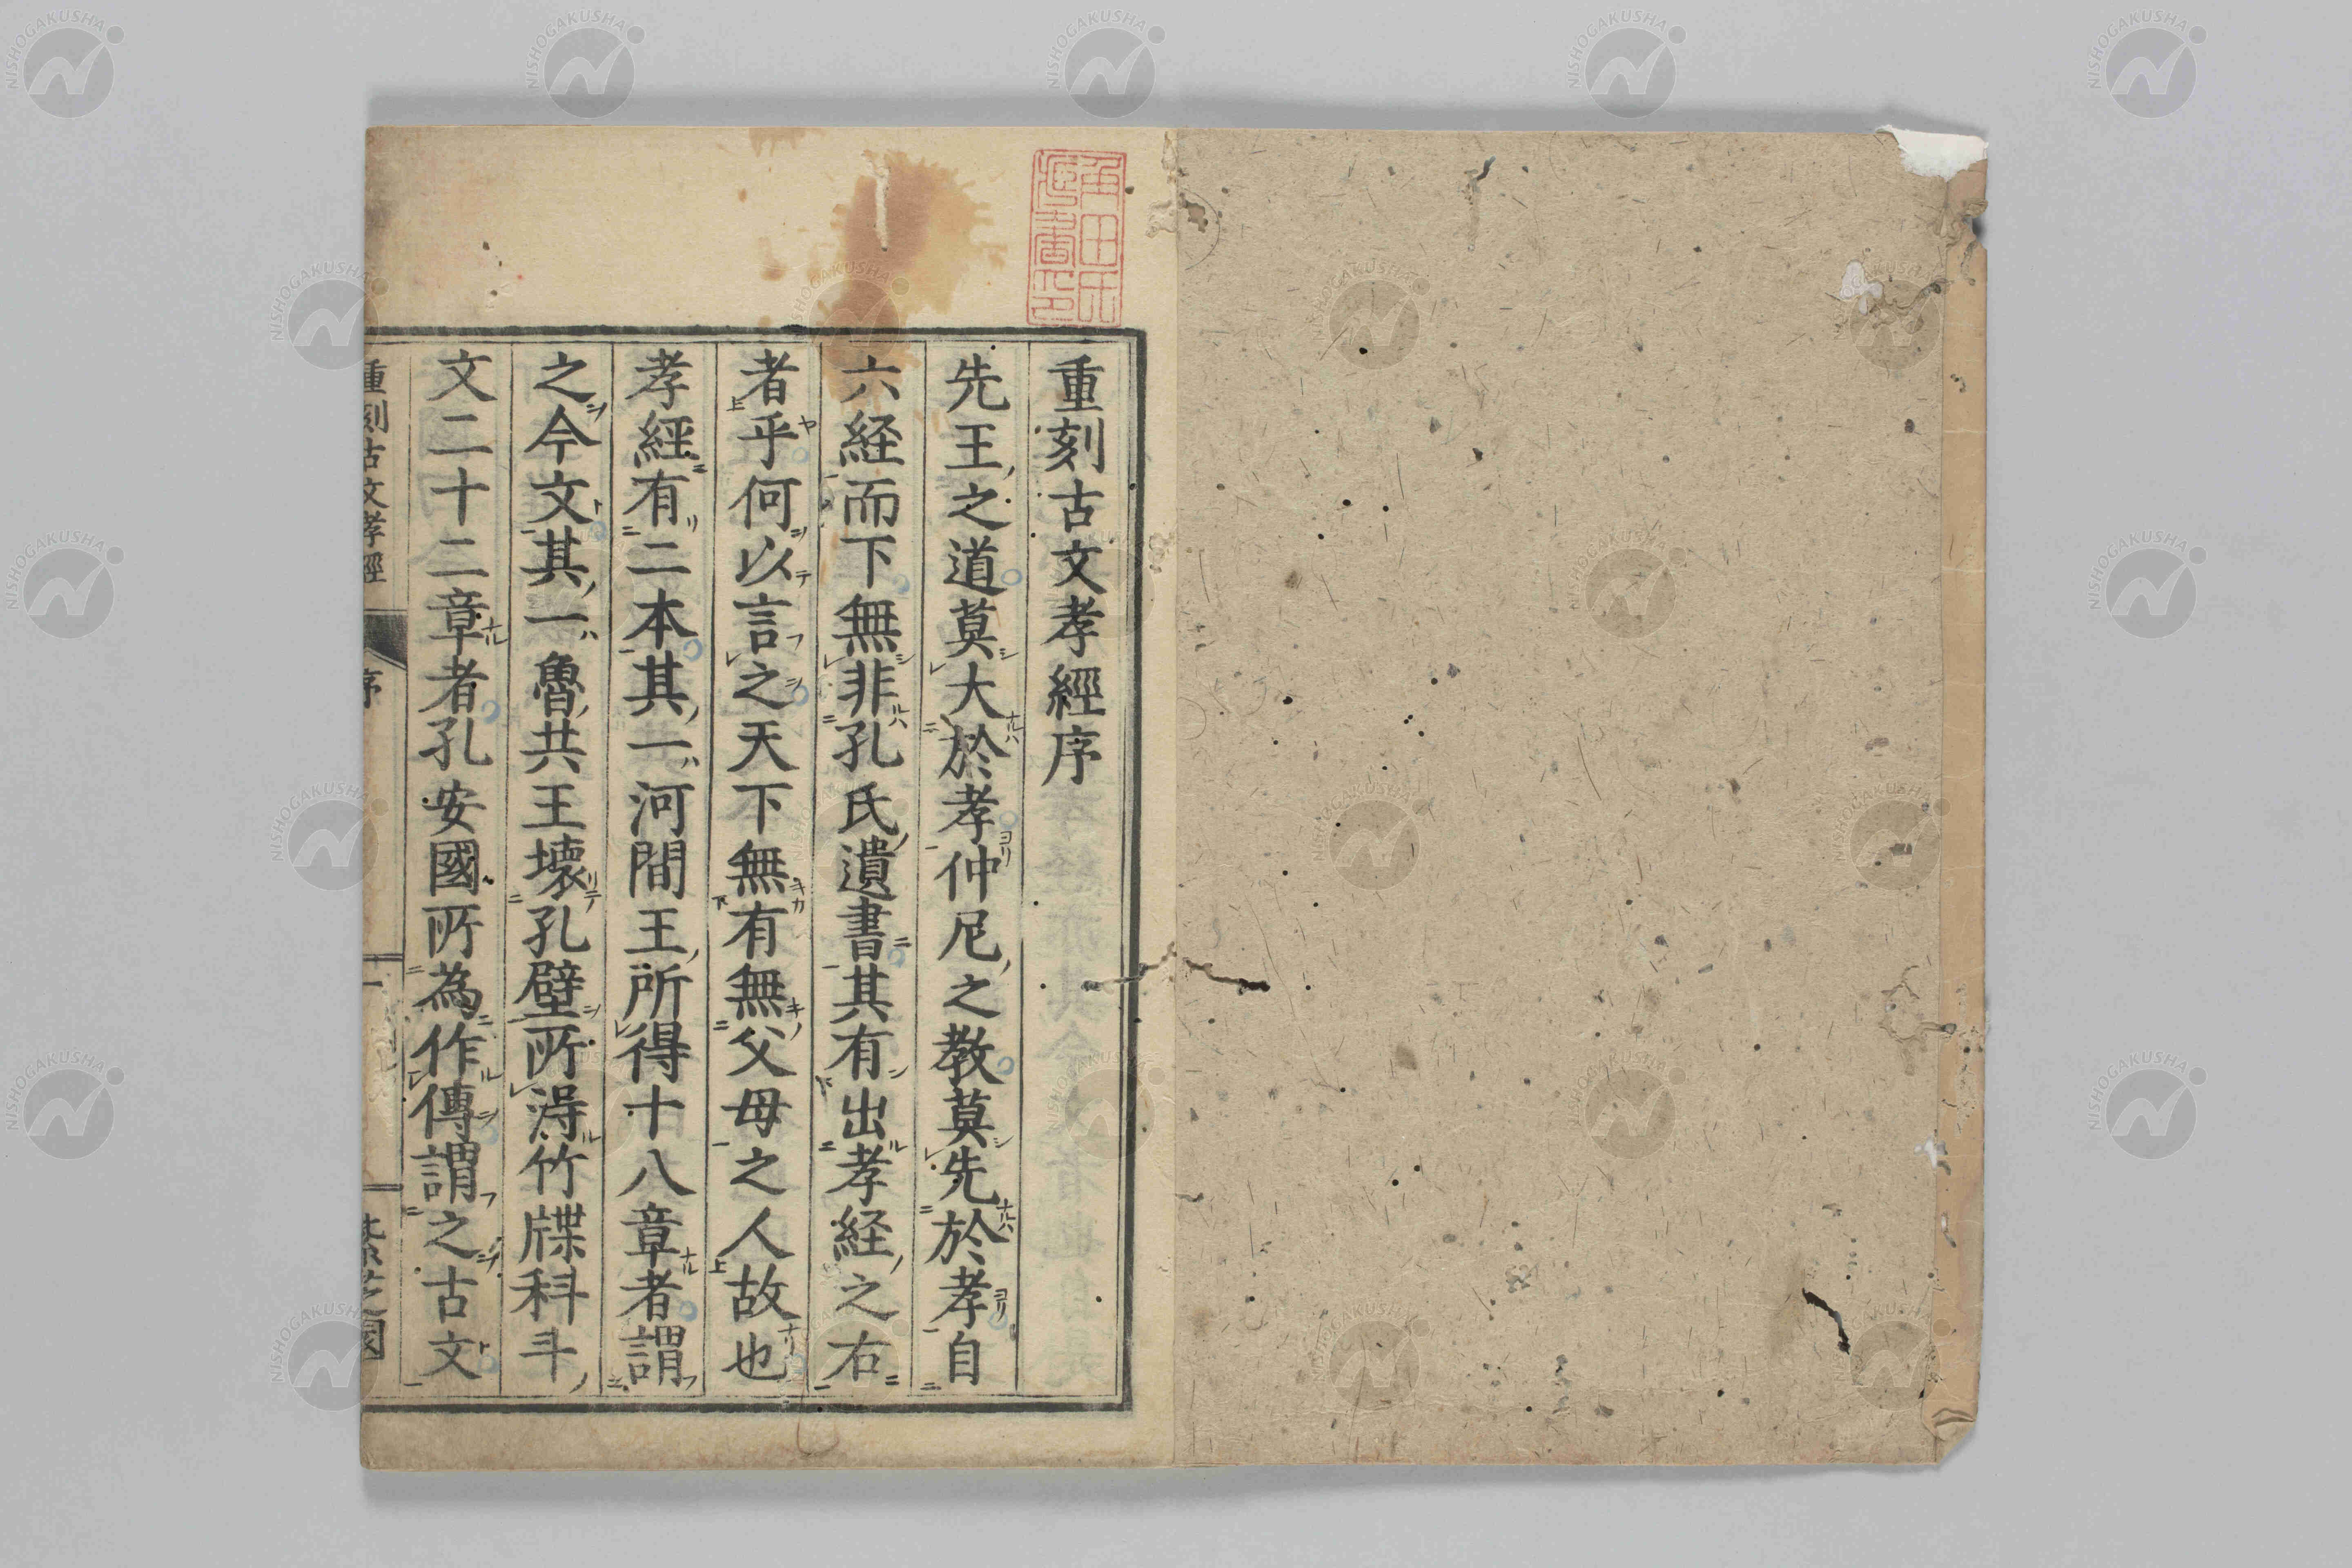 重刻古文孝經序
先王之道莫大於孝仲尼之教莫先於孝自
六経而下無非孔氏遺書其有出孝経之右
者乎何以言之天下無有無父母之人故也
孝經有二本其一河間王所得十八章者謂
之今文其一魯共王壞孔壁所得竹牒科斗
文二十二章者孔安國所為作傳謂之古文
重刻古文孝經 序 一 紫芝園
角田氏
藏書印
NISHOGAKUSHA